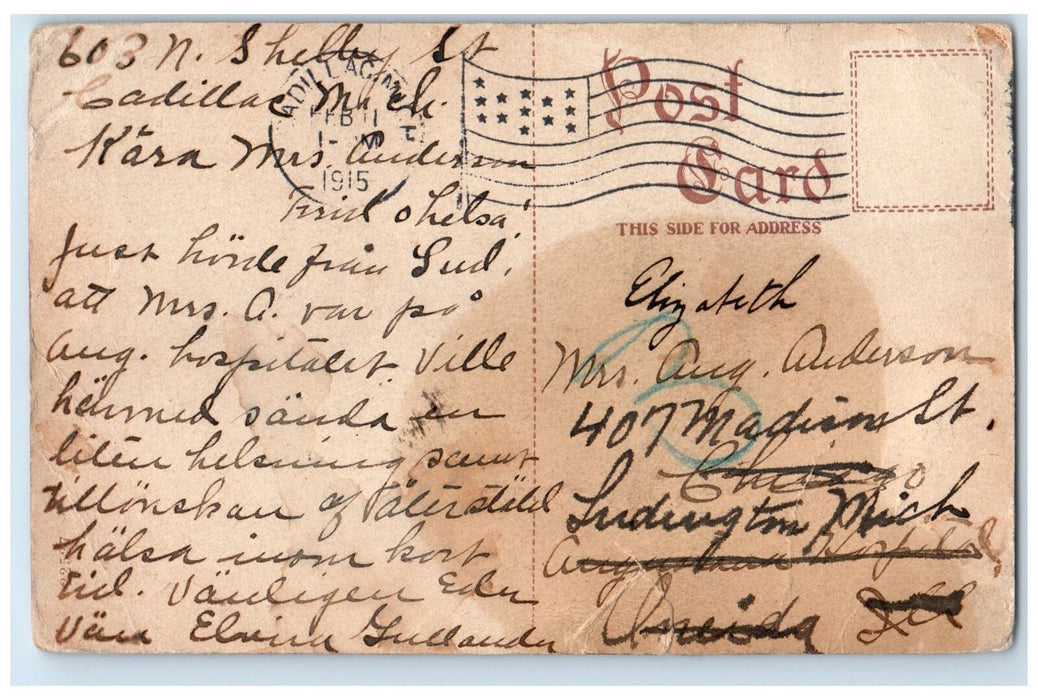 603 N. Shelby St
Cadillac Mich.
Kära Mrs. Anderson
Frid o helsa!
Just hörde från Lud.
att Mrs. A. var på
Aug. hospitalet Ville
härmed sända en
liten helsning samt
tillönskan af återstäld
hälsa inom kort
tid. Vänligen Eder
Vän Elvira Gullander
CADILLAC, MICH.
FEB 11
1915
Post
Card
THIS SIDE FOR ADDRESS
Elizabeth
Mrs. Aug. Anderson
407 Madison St.
Chicago
Ludington, Mich
Augustana Hospital,
Ill